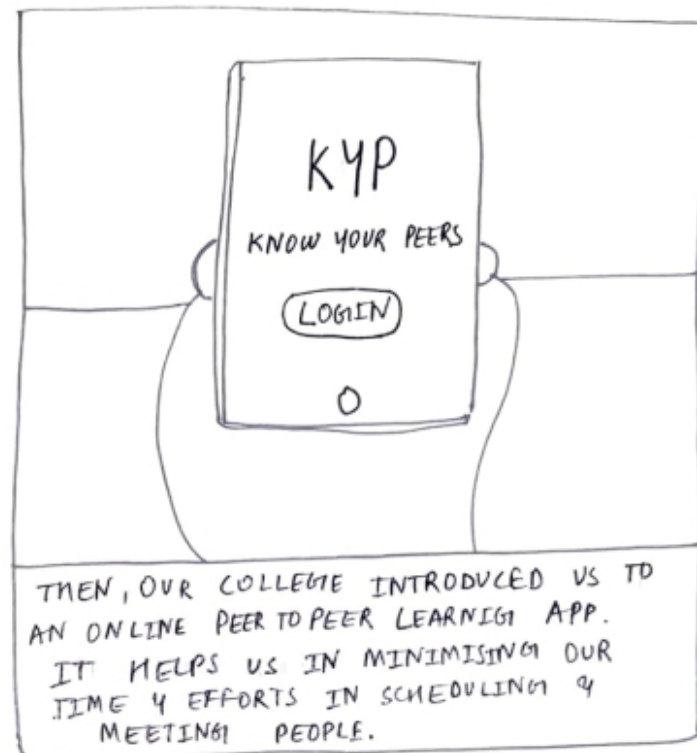 KYP
KNOW YOUR PEERS
LOGIN
THEN, OUR COLLEGE INTRODUCED US TO
AN ONLINE PEER TO PEER LEARNIG APP.
IT HELPS US IN MINIMISING OUR
TIME & EFFORTS IN SCHEDULING &
MEETING PEOPLE.